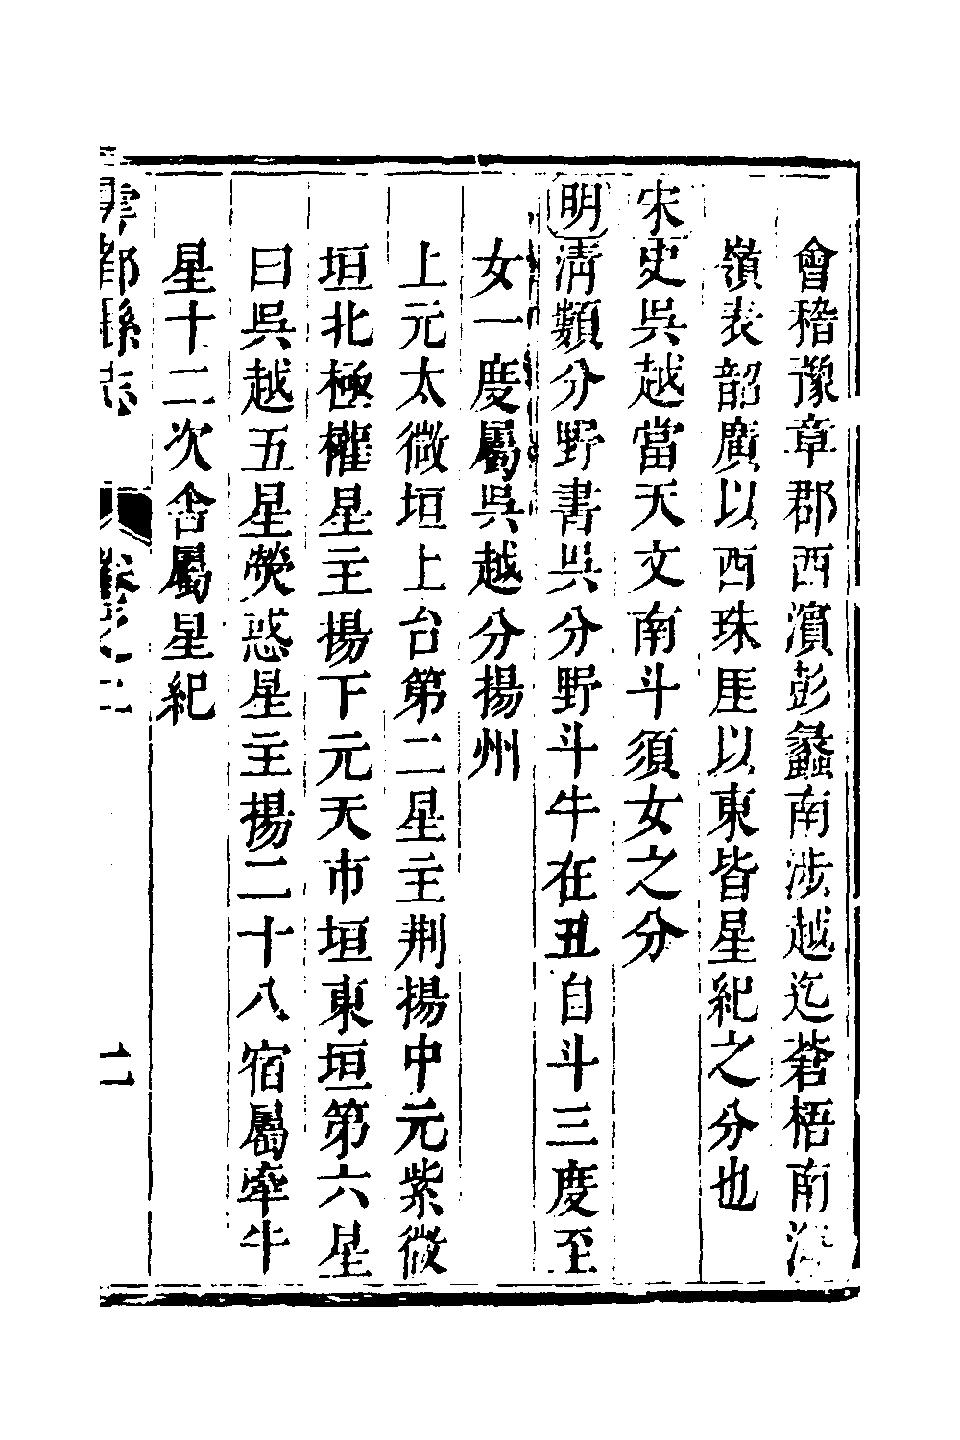 會稽豫章郡西濱彭蠡南涉越迄蒼梧南海
嶺表韶廣以西珠厓以東皆星紀之分也
宋史吳越當天文南斗須女之分
明清類分野書吳分野斗牛在丑自斗三度至
女一度屬吳越分揚州
上元太微垣上台第二星主荆揚中元紫微
垣北極權星主揚下元天市垣東垣第六星
曰吳越五星熒惑星主揚二十八宿屬牽牛
星十二次舍屬星紀
雩都縣志
卷之二
二